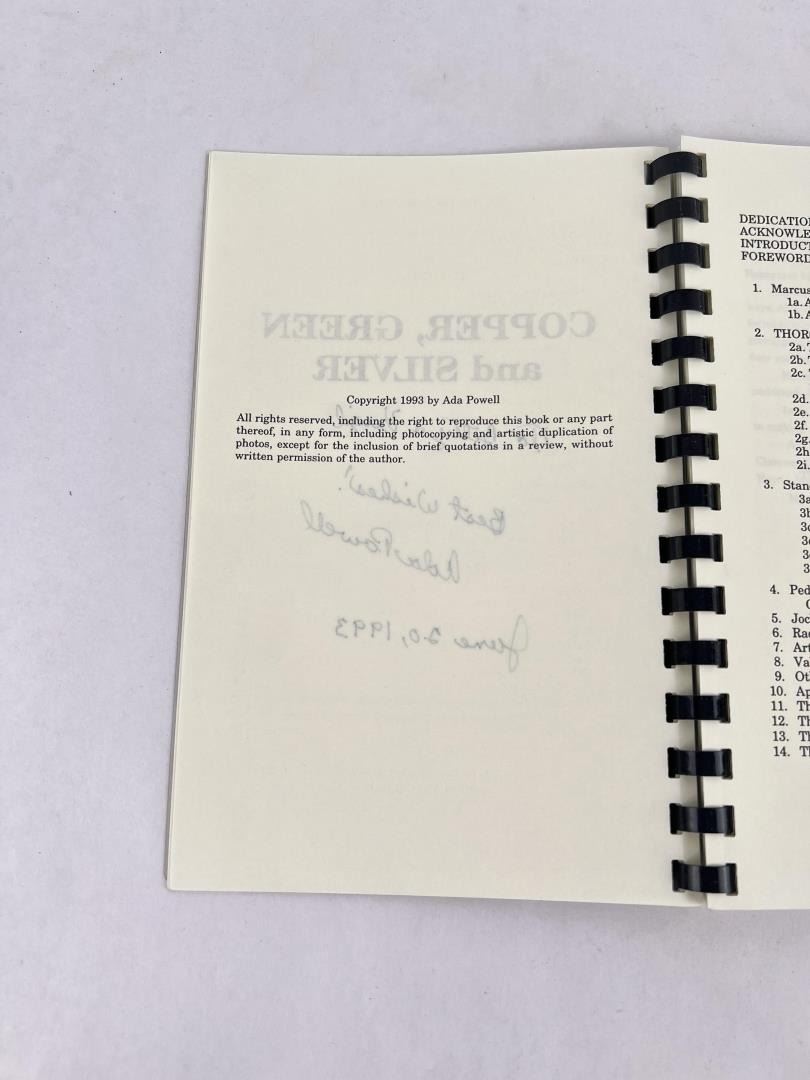 COPPER, GREEN
and SILVER
Copyright 1993 by Ada Powell
All rights reserved, including the right to reproduce this book or any part
thereof, in any form, including photocopying and artistic duplication of
photos, except for the inclusion of brief quotations in a review, without
written permission of the author.
Best Wishes!
Ada Powell
June 20, 1993
DEDICATIO
ACKNOWLE
INTRODUCT
FOREWORD
1. Marcus
1a. A
1b. A
2. THOR
2a. T
2b. T
2c.
2d.
2e.
2f.
2g.
2h
2i.
3. Stan
3a
3b
4. Ped
5. Joc
6. Ra
7. Art
8. Va
9. Ot
10. Ap
11. Th
12. Th
13. Th
14. T